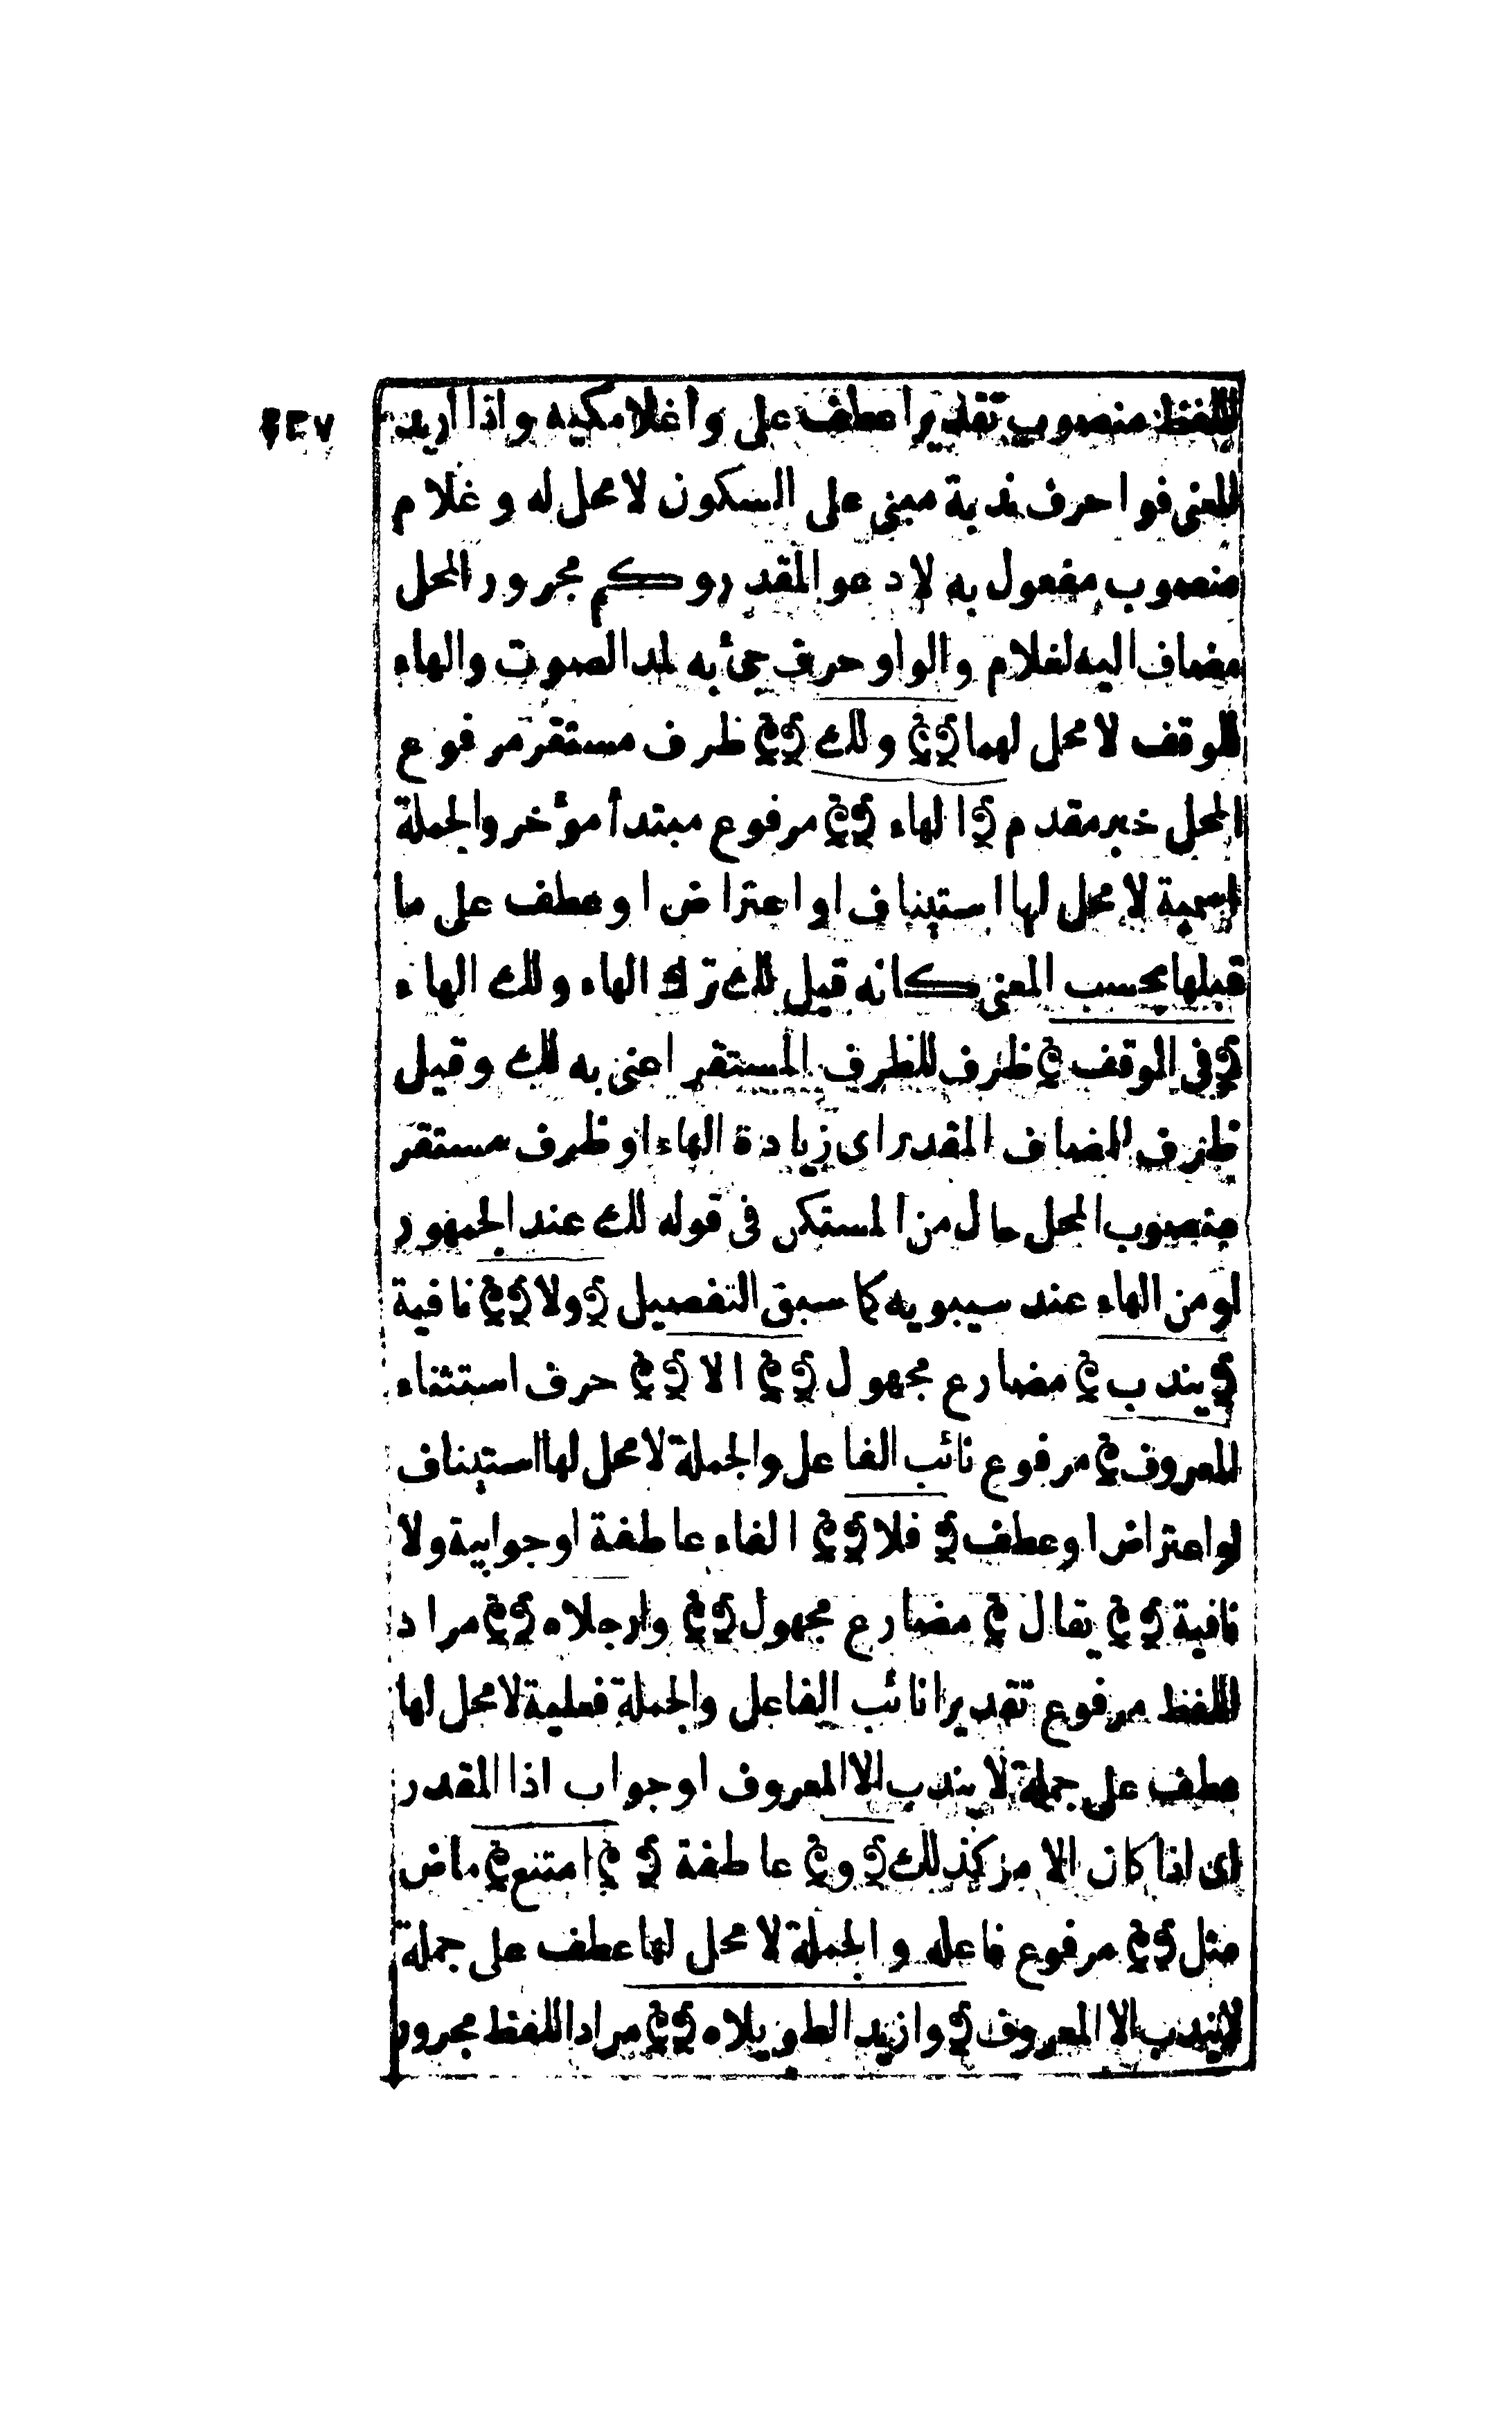 اللفظ منصوب تقديرا عطف على وا غلامكيه واذا أريد
المعنى فوا حرف ندبة مبنى على السكون لا محل له و غلام
منصوب مفعول به لادعو المقدر وكم مجرور المحل
مضاف اليه لغلام والواو حرف جئ به لمد الصوت والهاء
للوقف لا محل لهما ﴿﴾ ولك ﴿﴾ ظرف مستقر مرفوع
المحل خبر مقدم ﴿ الهاء ﴿﴾ مرفوع مبتدأ مؤخر والجملة
اسمية لا محل لها استيناف او اعتراض او عطف على ما
قبلها بحسب المعنى كانه قيل لك ترك الهاء ولك الهاء
﴿ فى الوقف ﴾ ظرف للظرف المستقر اعنى به لك وقيل
ظرف للمضاف المقدر اى زيادة الهاء او ظرف مستقر
منصوب المحل حال من المستكن فى قوله لك عند الجمهور
او من الهاء عند سيبويه كما سبق التفصيل ﴿ ولا ﴿﴾ نافية
﴿ يندب ﴾ مضارع مجهول ﴿﴾ الا ﴿﴾ حرف استثناء
المعروف ﴾ مرفوع نائب الفاعل والجملة لا محل لها استيناف
او اعتراض او عطف ﴿ فلا ﴿﴾ الفاء عاطفة او جوابية ولا
نافية ﴿﴾ يقال ﴾ مضارع مجهول ﴿﴾ وارجلاه ﴿﴾ مراد
اللفظ مرفوع تقديرا نائب الفاعل والجملة فعلية لا محل لها
عطف على جملة لا يندب الا المعروف او جواب اذا المقدر
اى اذا كان الامر كذلك ﴿ و ﴾ عاطفة ﴿ ﴾ امتنع ﴾ ماض
مثل ﴿﴾ مرفوع فاعله والجملة لا محل لها عطف على جملة
لا يندب الا المعروف ﴿ وازيد الطويلاه ﴿﴾ مراد اللفظ مجرور